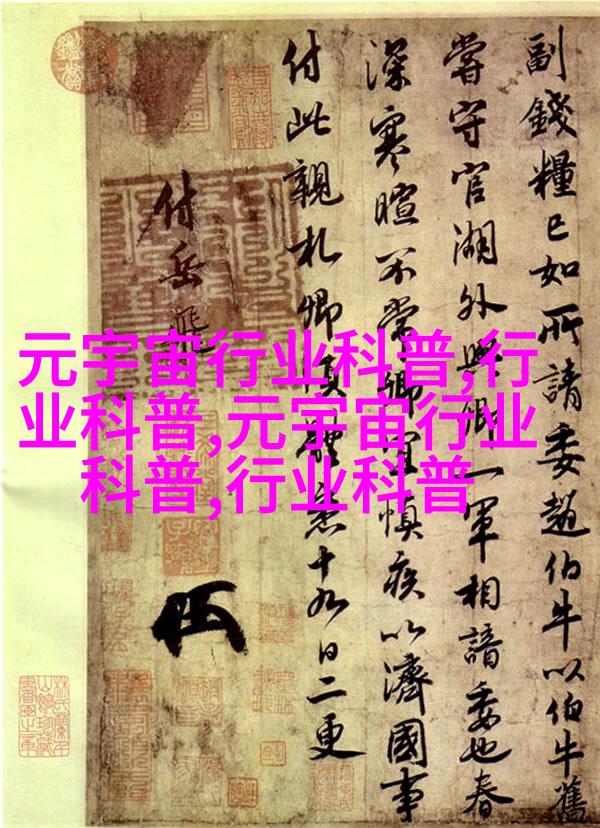 元宇宙行业科普,行
业科普,元宇宙行业
科普,行业科普
副錢糧已如所請委趙伯牛以伯牛舊
嘗守官湖外與卿一軍相諳委也春
深寒暄不常卿宜慎疾以濟國事
付此親札卿須體悉十九日二更
付岳飛